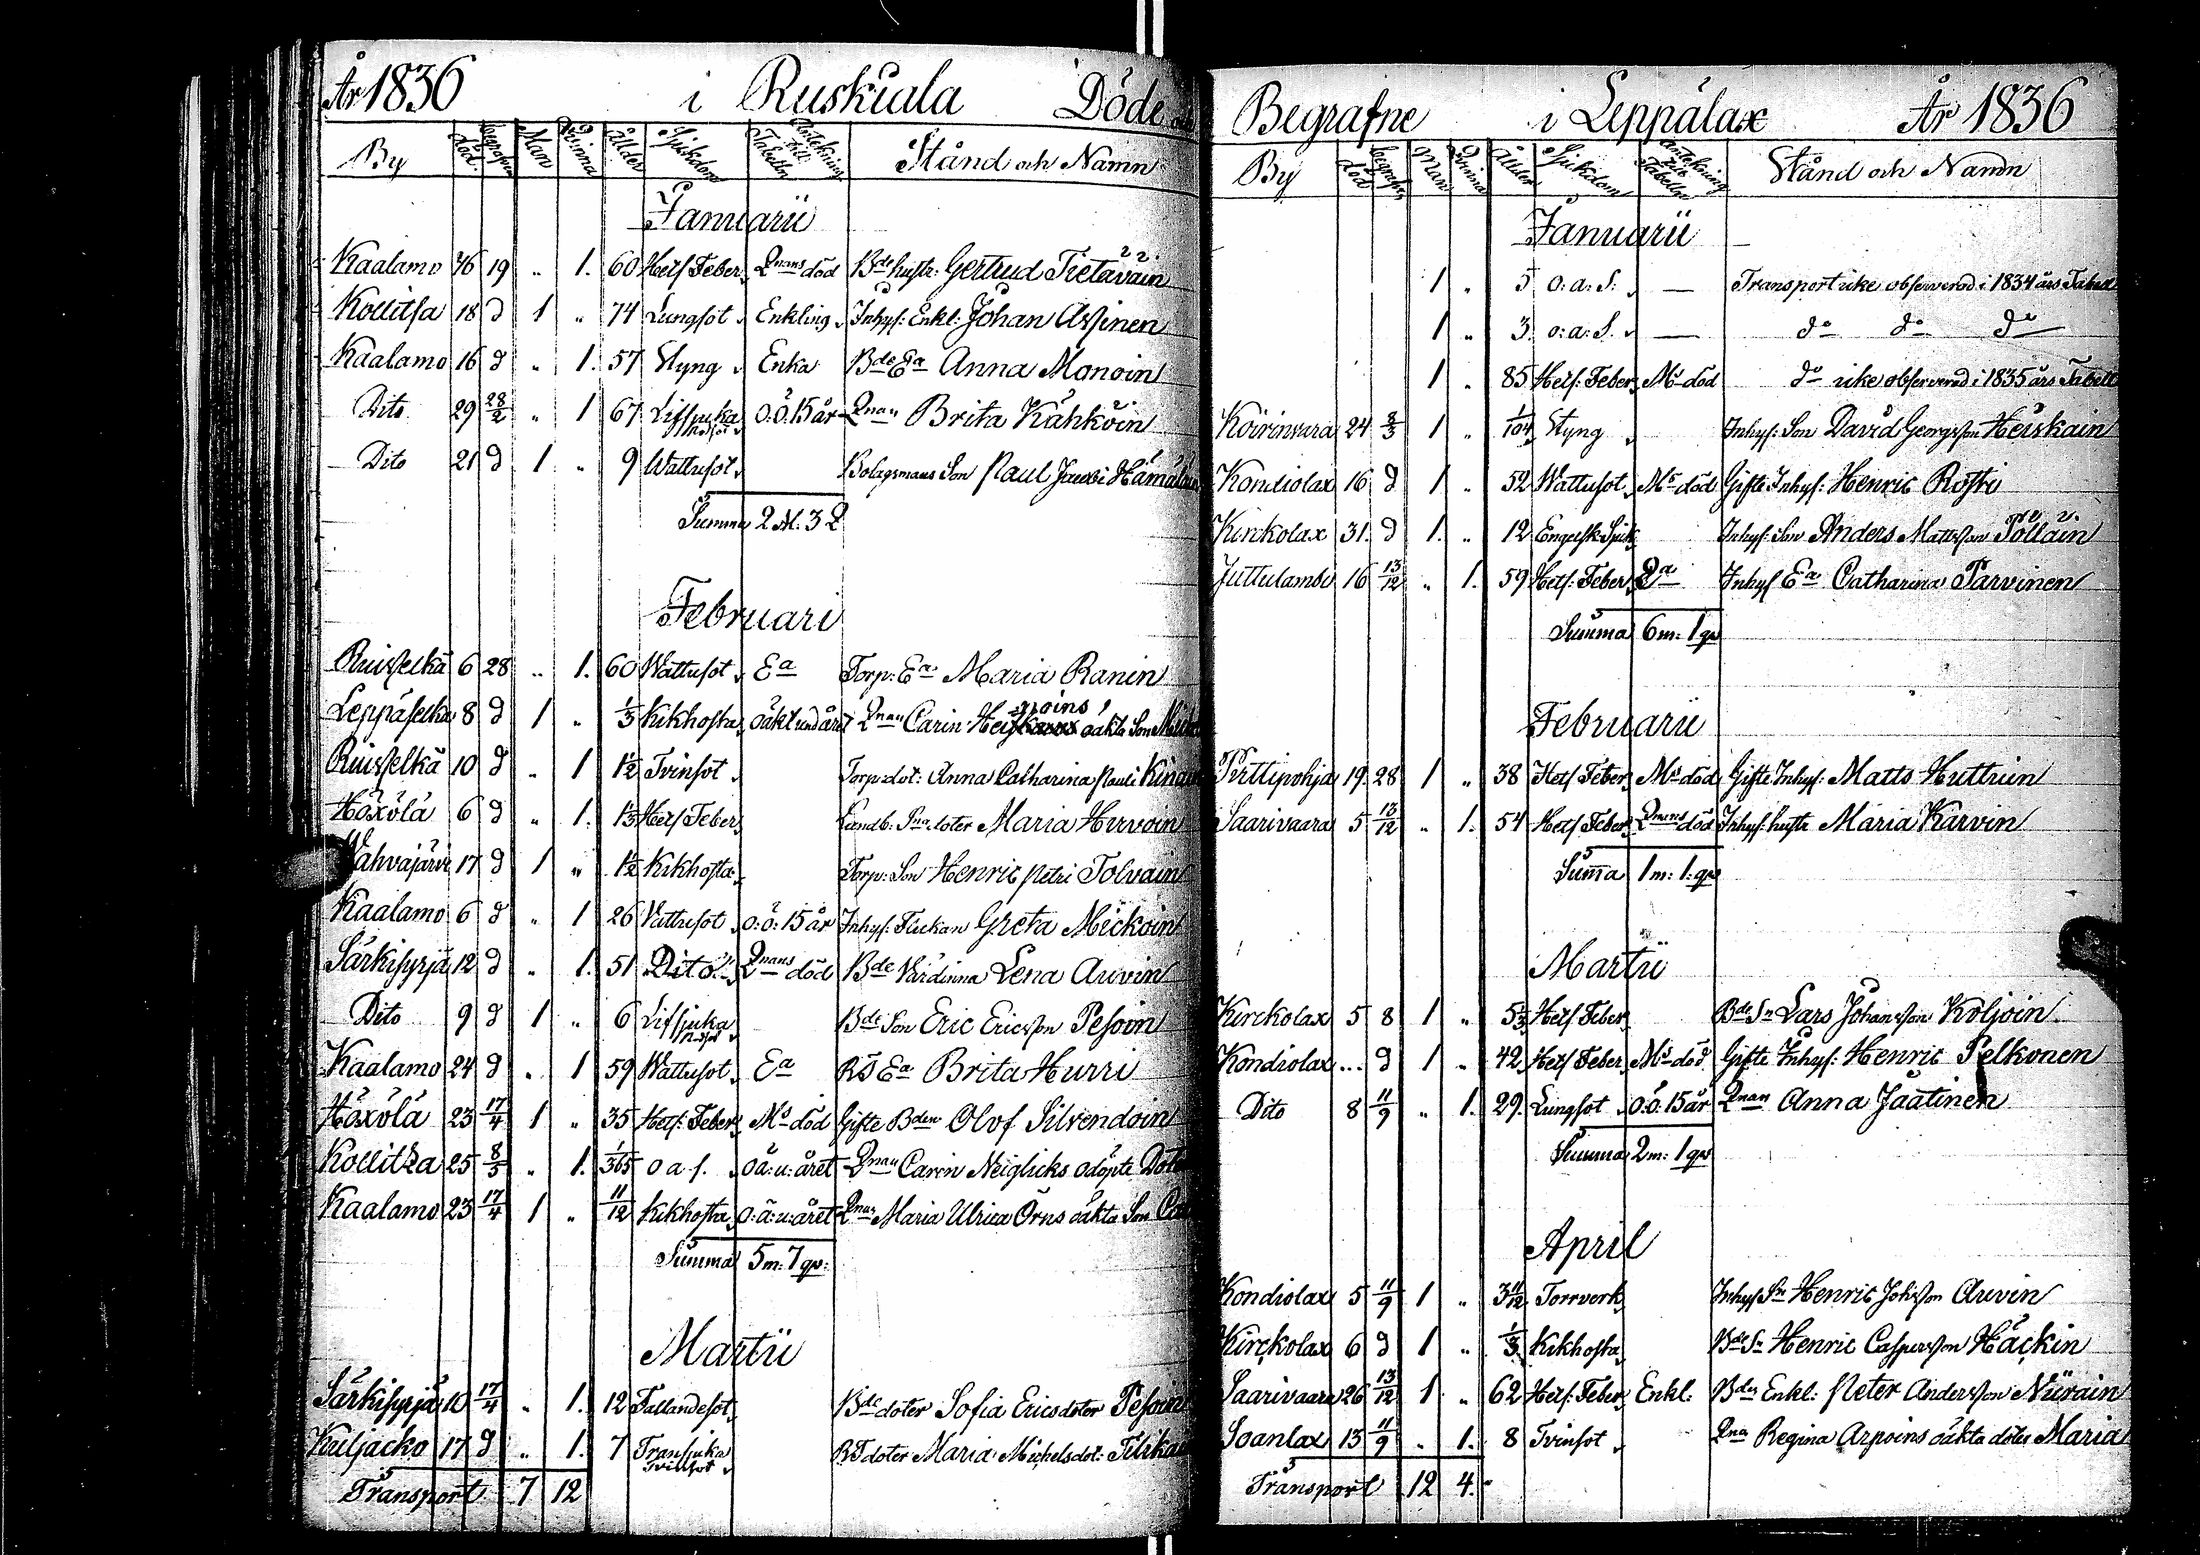 År 1836 i Ruskiala Döde
By död. begrafne Man Qvinna Ålder Sjukdom Antekning till Tabellen Stånd och Namn
Januarii
Kaalamo 16 19 " 1. 60 Hets Feber Qnans död Bde hustr: Gertrud Tietäväin
Kollitsa 18 d 1 " 74 Lungsot Enkling Inhys: Enkl: Johan Assinen
Kaalamo 16 d " 1. 57 Styng Enka Bde Ea Anna Monoin
Dito 29 28/2 " 1 67 Lifsjuka o: ö: 15 år Qnan Brita Kähköin
Dito 21 d 1 " 9 Wattusot Bolagsmans Son Paul Jacobi
Summa 2 M: 3 Q
Februari
Ruisselkä 6 28 " 1. 60 Wattusot Ea Torp: Ea Maria Ranin
Leppäselkä 8 d 1 " 1/3 Kikhosta oäkt und året Qnan Carin oäkta Son
Ruisselkä 10 d " 1 1 1/2 Tvinsot Torp: dot: Anna Catharina Pauli
Höxölä 6 d " 1. 1 1/3 Hets Feber Landb: Pna doter Maria Hirvoin
Wahvajärvi 17 d 1 " 1 1/2 Kikhosta Torp: Son Henric Petri Tolvain
Kaalamo 6 d " 1 26 Vattusot o: ö: 15 år Inhys: Flickan Greta Mickoin
Särkisyrjä 12 d " 1. 51 Dito Qnans död Bde Värdinna Lena Auvin
Dito 9 d 1 " 6 Lifsjuka Bde Son Eric Ericsson Pesoin
Kaalamo 24 d " 1 59 Wattusot Ea RS Ea Brita Hurri
Höxölä 23 17/4 1 " 35 Hets: Feber Ms död Gifte Bden Olof Silvendoin
Kollitza 25 8/3 " 1. 1/365 o a s. oä: u: året Qnan Carin Neiglicks odöpte
Kaalamo 23 17/4 1 " 11/12 Kikhosta o: ä: u: året Qnas Maria Ulrica Örns oäkta Son
Summa 5 m: 7 qv:
Martii
Särkisyrjä 10 17/4 " 1. 12 Fallandesot Bde doter Sofia Ericsdoter Pesoin
Kuljacko 17 d " 1. 7 Transjuka Tvinsot RT doter Maria Michelsdot:
Transport 7 12
Begrafne i Leppälax År 1836
By död begrafne Man Qvinna Ålder Sjukdom Antekning till Tabellen Stånd och Namn
Januarii
1 " 5 o: a: S: — Transport icke observerad i 1834 års Tabell
1 " 3 o: a: S. — do do do
1 " 85 Hets: Feber Ms död do icke observerad i 1835 års Tabell
Koirinvara 24 8/3 1 " 1/104 Styng Inhys: Son David Georgsson Heiskain
Kondiolax 16 d 1 " 52 Wattusot Ms död Gifte Inhys: Henric Rossi
Kirckolax 31. d 1. " 12 Engelsk Sjuk Inhys: Son Anders Mattsson Pölläin
Juttulambi 16 13/12 " 1. 59 Hets: Feber Ea Inhys Ea Catharina Parvinen
Summa 6 m: 1 qv
Februarii
Perttipohja 19. 28 1 " 38 Hets Feber Ms död Gifte Inhys: Matts Huttuin
Saarivaara 5 13/12 " 1. 54 Hets Feber Qnans död Inhys: hustr Maria Karvin
Summa 1 m: 1. qv
Martii
Kirckolax 5 8 1 " 5 1/3 Hets Feber Bde Sn Lars Johansson Koljoin
Kondiolax ... d 1 " 42 Hets Feber Ms död Gifte Inhys: Henric Pelkonen
Dito 8 11/9 " 1. 29. Lungsot o: ö: 15 år Qnan Anna Jäätinen
Summa 2 m: 1 qv
April
Kondiolax 5 11/9 1 " 3 11/12 Torrverk Inhys Sn Henric Johsson Auvin
Kirckolax 6 d 1 " 1/3 Kikhosta Bde Sn Henric Caspersson Häckin
Saarivaara 26 13/12 1 " 62 Hets: Feber Enkl. Bdes Enkl: Peter Andersson Niirain
Soanlax 13 11/9 " 1. 8 Tvinsot Qna Regina Arpoins oäkta doter Maria
Transport 12 4.